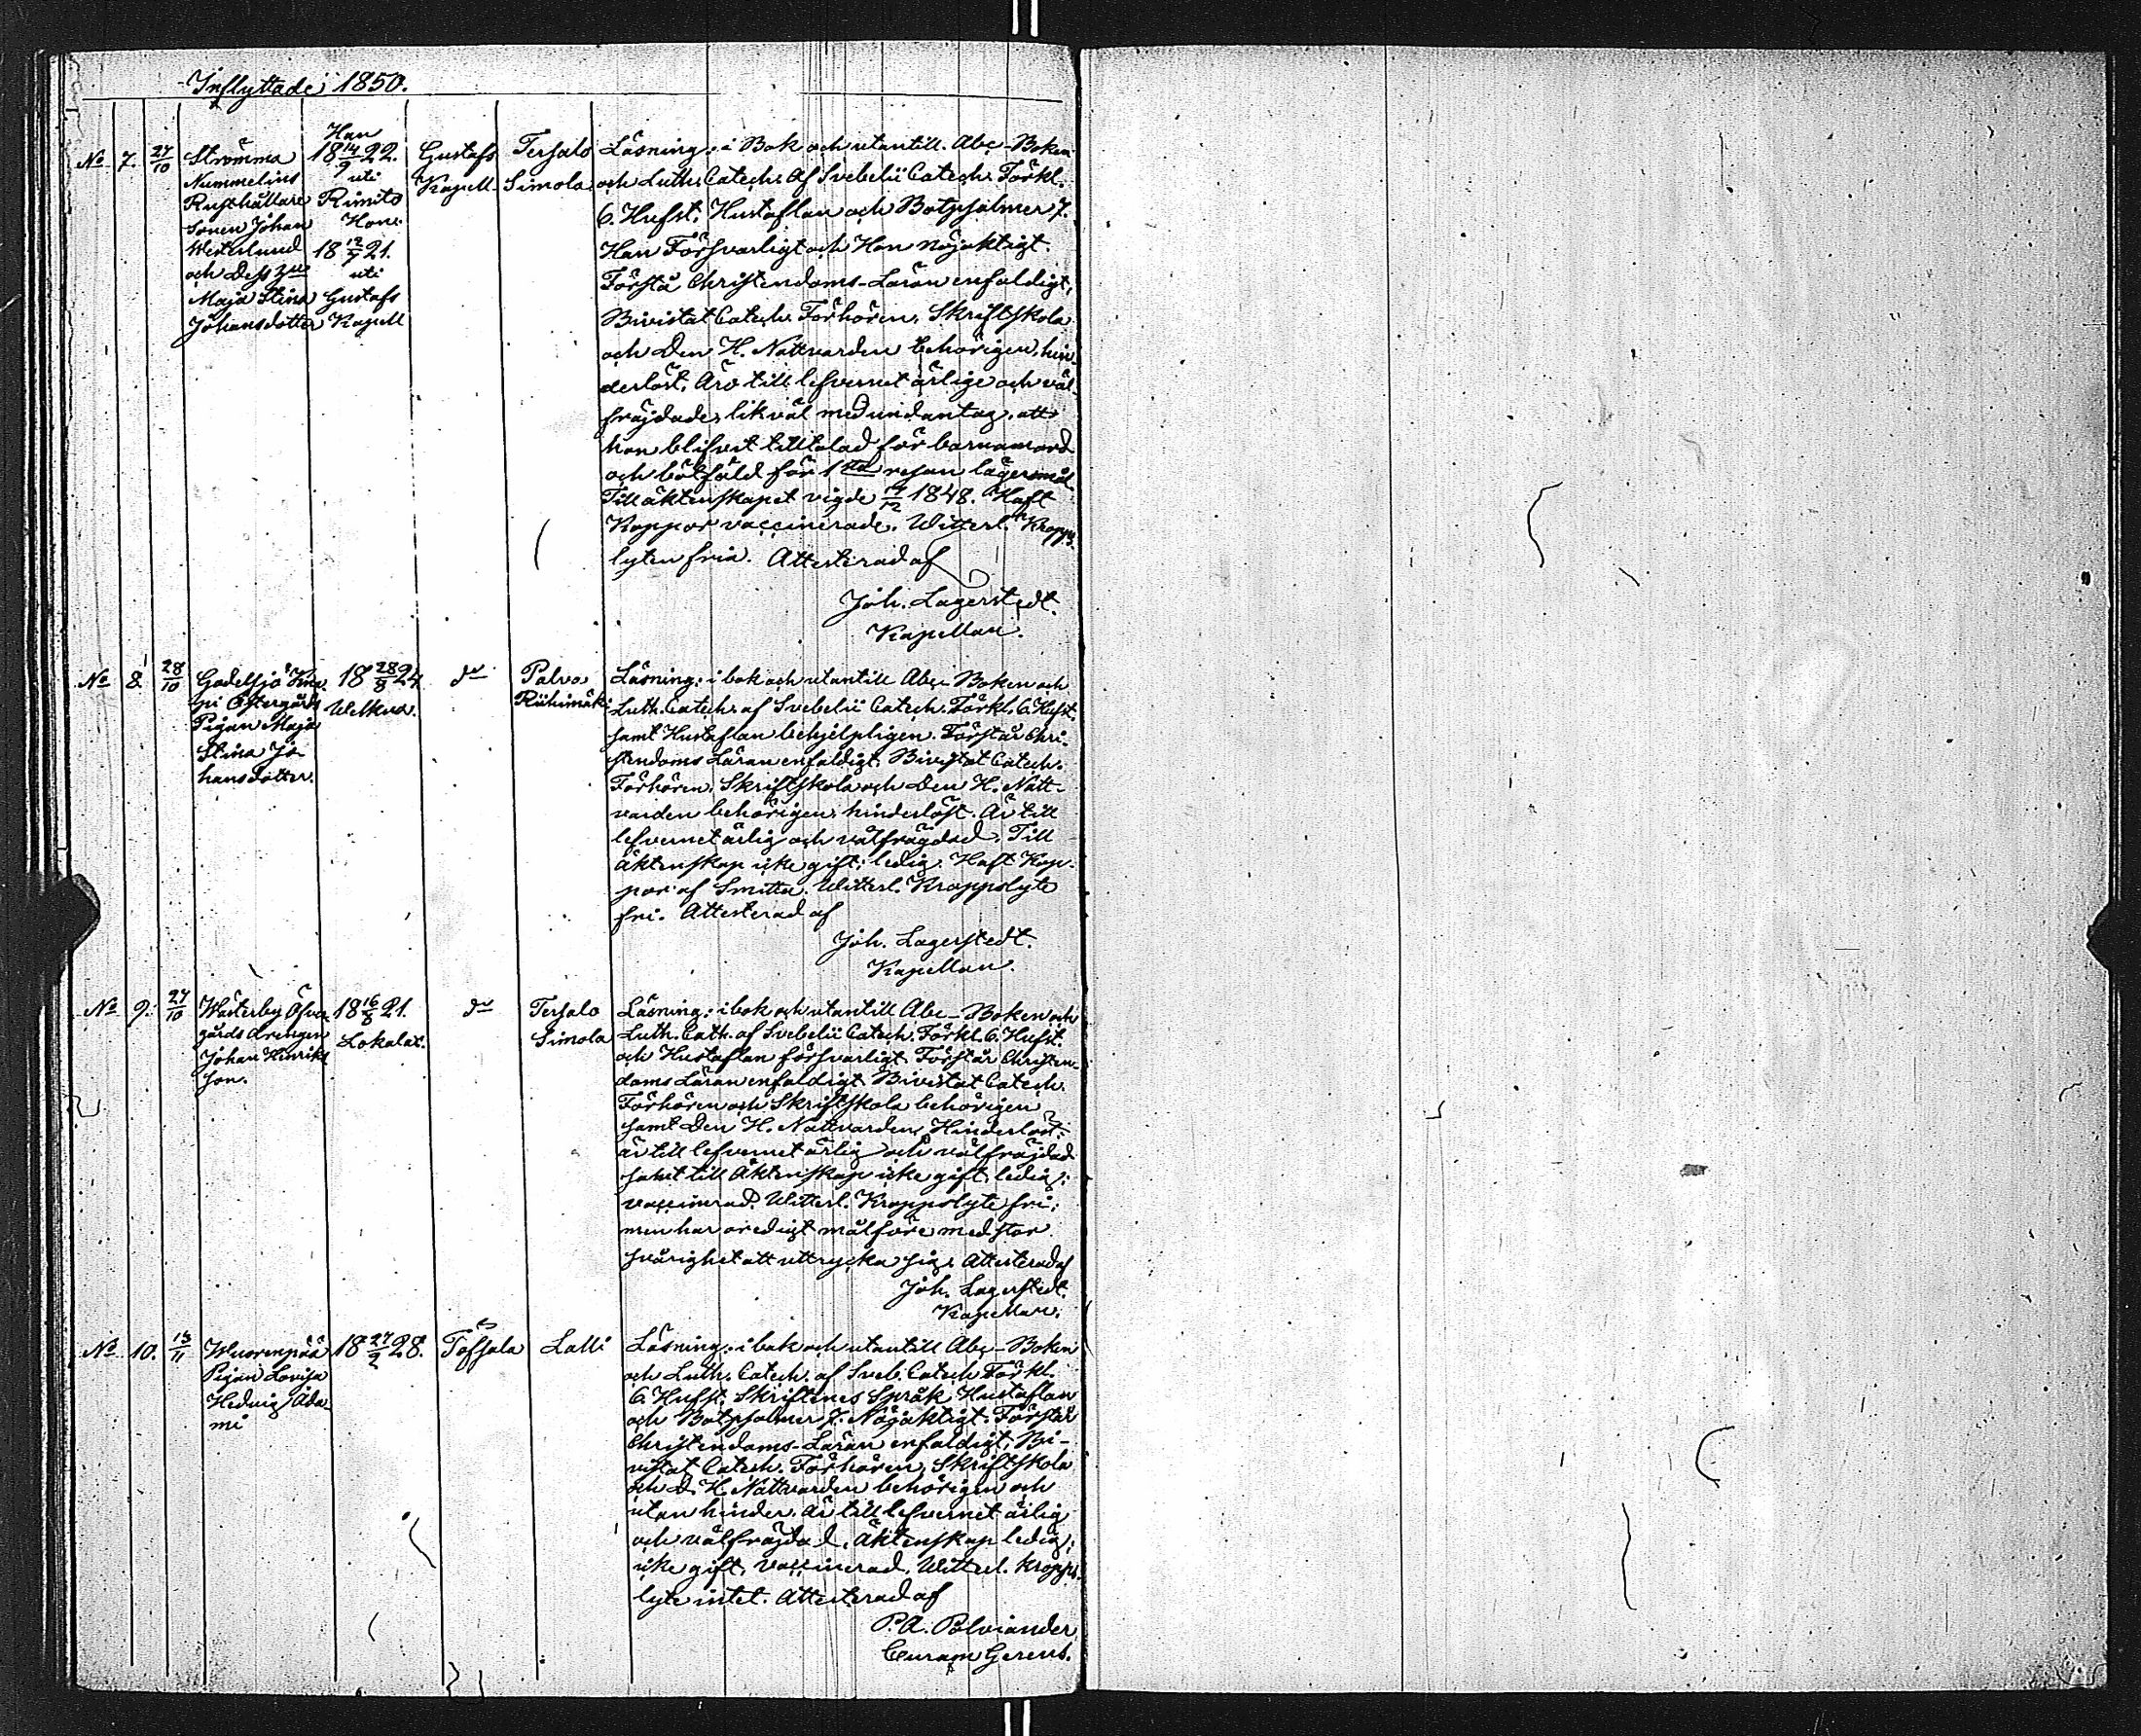 Inflyttade 1850.
No 7. 27/10
Strömma
Nummelins
Rusthållare
Sonen Johan
Westerlund
och Dess
Maja Stina
Johansdotter
Han
18 14/9 22.
uti
Rimito
Hon
18 12/7 21.
uti
Gustafs
Kapell
Gustafs
Kapell
Tersalo
Simola
Läsning: i Bok och utantill. Abc-Boken
och Luth. Catech. af Svebelii Catech. Förkl.
6. Hufst. Hustaflan och Botpsalmer 7.
Han Försvarligt och Hon nöjaktigt.
Förstå Christendoms-Läran enfaldigt,
Bivistat Catech. Förhören, Skriftskola
och Den H. Nattvarden behörigen, hin-
derlöst. Äro till lefvernet ärlige och väl
fräjdade, likväl med undantag, att
hon blifvit tilltalad för barnamord
och bötfäld för 1sta resan lägersmål.
Till äktenskapet vigde /12 1848. Haft
Koppor vaccinerade. Witterl. Kropps
lyten fria. Attesterad af
Joh. Lagerstedt.
Kapellan.
No 8. 28/10
Godelsjö
Östergårds
Pigan Maja
Stina Jo-
hansdotter.
18 28/8 24.
Welkua.
do
Palva
Riihimäki
Läsning: i bok och utantill Abc-Boken och
Luth. Catech. af Svebelii Catech. Förkl. 6. Hufst.
samt Hustaflan behjelpligen. Förstår Chri-
stendoms Läran enfaldigt. Bivistat Catech.
Förhören, Skriftskola och Den H. Natt-
varden behörigen, hinderlöst. Är till
lefvernet ärlig och välfrägdad. Till
Äktenskap icke gift; ledig. Haft Kop-
por af Smitta. Witterl. Kroppslyte
fri. Attesterad af
Joh. Lagerstedt.
Kapellan.
No 9. 27/10
Wästerby Öfver
gårds drengen
Johan Henriks
son.
18 16/8 21.
Lokalat.
do
Tersalo
Simola
Läsning: i bok och utantill Abc-Boken och
Luth. Cath. af Svebelii Catech. Förkl. 6. Hufst.
och Hustaflan försvarligt. Förstår Christen-
doms Läran enfaldigt. Bivistat Catech.
Förhören och Skriftskola behörigen
samt Den H. Nattvarden, Hinderlöst:
är till lefvernet ärlig och välfräjdad
samt till Äktenskap icke gift, ledig;
vaccinerad. Witterl. Kroppslyte fri;
men har oredigt målföre med stor
svårighet att uttrycka sig. Attesterad af
Joh. Lagerstedt.
Kapellan.
No 10. 13/11
Wuorenpää
Pigan Lovisa
Hedvig Ada-
mi
18 27/2 28.
Töfsala
Lalli
Läsning: i bok och utantill Abc-Boken
och Luth. Catech. af Sveb. Catech. Förkl.
6. Hufst. Skriftenes Språk, Hustaflan
och Botpsalmer 7. Nöjaktigt. Förstår
Christendoms-Läran enfaldigt, Bi-
vistat Catech. Förhören, Skriftskola
och D. H. Nattvarden behörigen och
utan hinder. Är till lefvernet ärlig
och välfräjdad. Äktenskap ledig;
icke gift, vaccinerad. Witterl. Kropps
lyte intet. Attesterad af
P. A. Polviander
Curam Gerens.